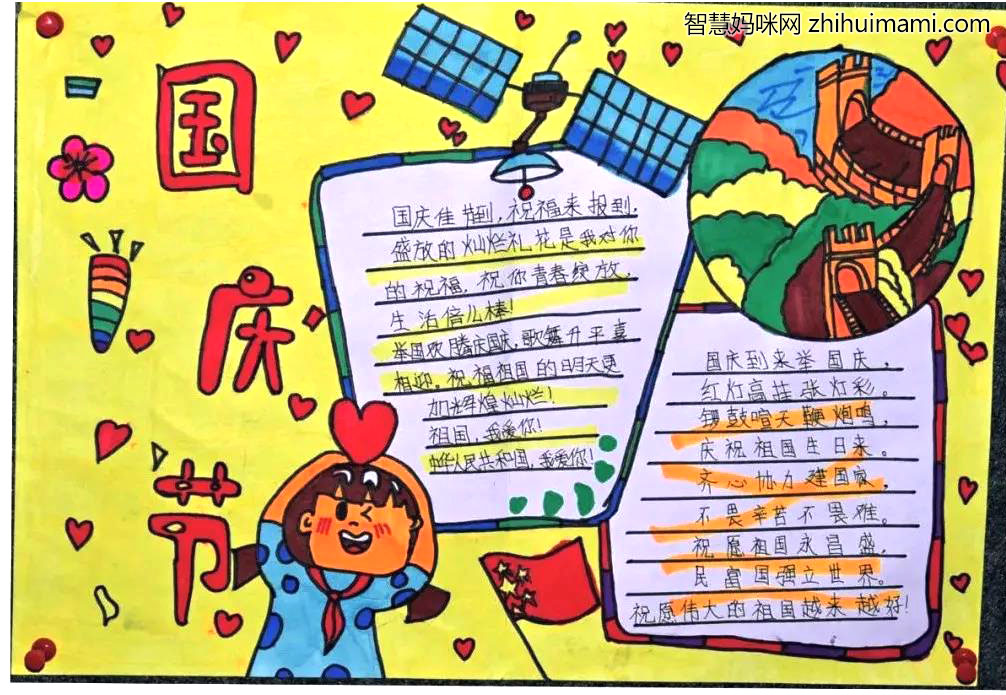 智慧妈咪网 zhihuimami.com
国庆节
国庆佳节到，祝福来报到，
盛放的灿烂礼花是我对你
的祝福，祝你青春绽放，
生活倍儿棒！
举国欢腾庆国庆，歌舞升平喜
相迎。祝福祖国的明天更
加辉煌灿烂！
祖国，我爱你！
中华人民共和国，我爱你！
国庆到来举国庆，
红灯高挂张灯彩。
锣鼓喧天鞭炮鸣，
庆祝祖国生日来。
齐心协力建国家，
不畏辛苦不畏难。
祝愿祖国永昌盛，
民富国强立世界。
祝愿伟大的祖国越来越好！